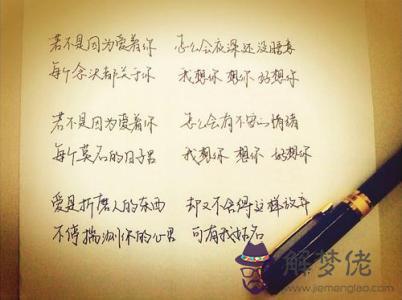 若不是因为爱着你 怎么会夜深还没睡意
每个念头都关于你 我想你 想你 好想你
若不是因为爱着你 怎么会有不安的情绪
每个莫名的日子里 我想你 想你 好想你
爱是折磨人的东西 却又不舍得这样放弃
不停揣测你的心里 可有我姓名
解梦佬
www.jiemenglao.com